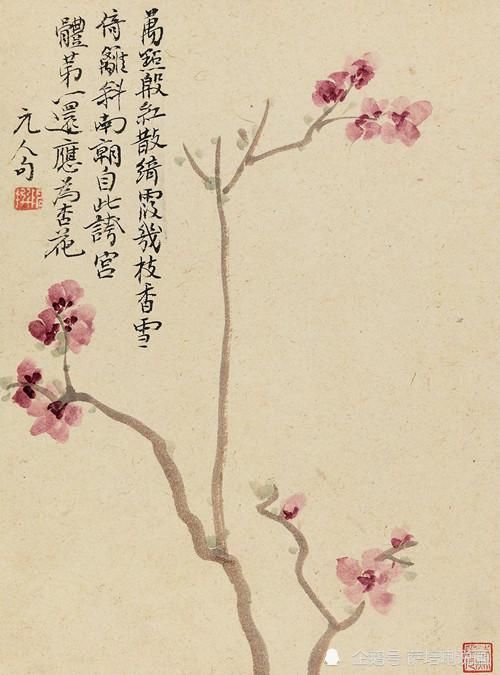 萬點殷紅散綺霞幾枝香雪
倚籬斜南朝自此誇宮
體第一還應為杏花
元人句
企鹅号